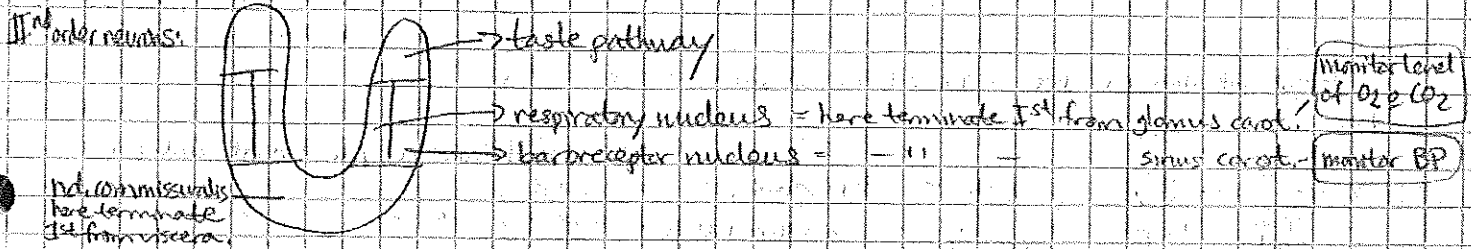 IInd order neurons:
→ taste pathway
→ respiratory nucleus = here terminate Ist from glomus carot.
monitor level
of O2 e CO2
→ baroreceptor nucleus = - " - sinus carot. - monitor BP
ncl. commissuralis
here terminate
Ist from viscera.